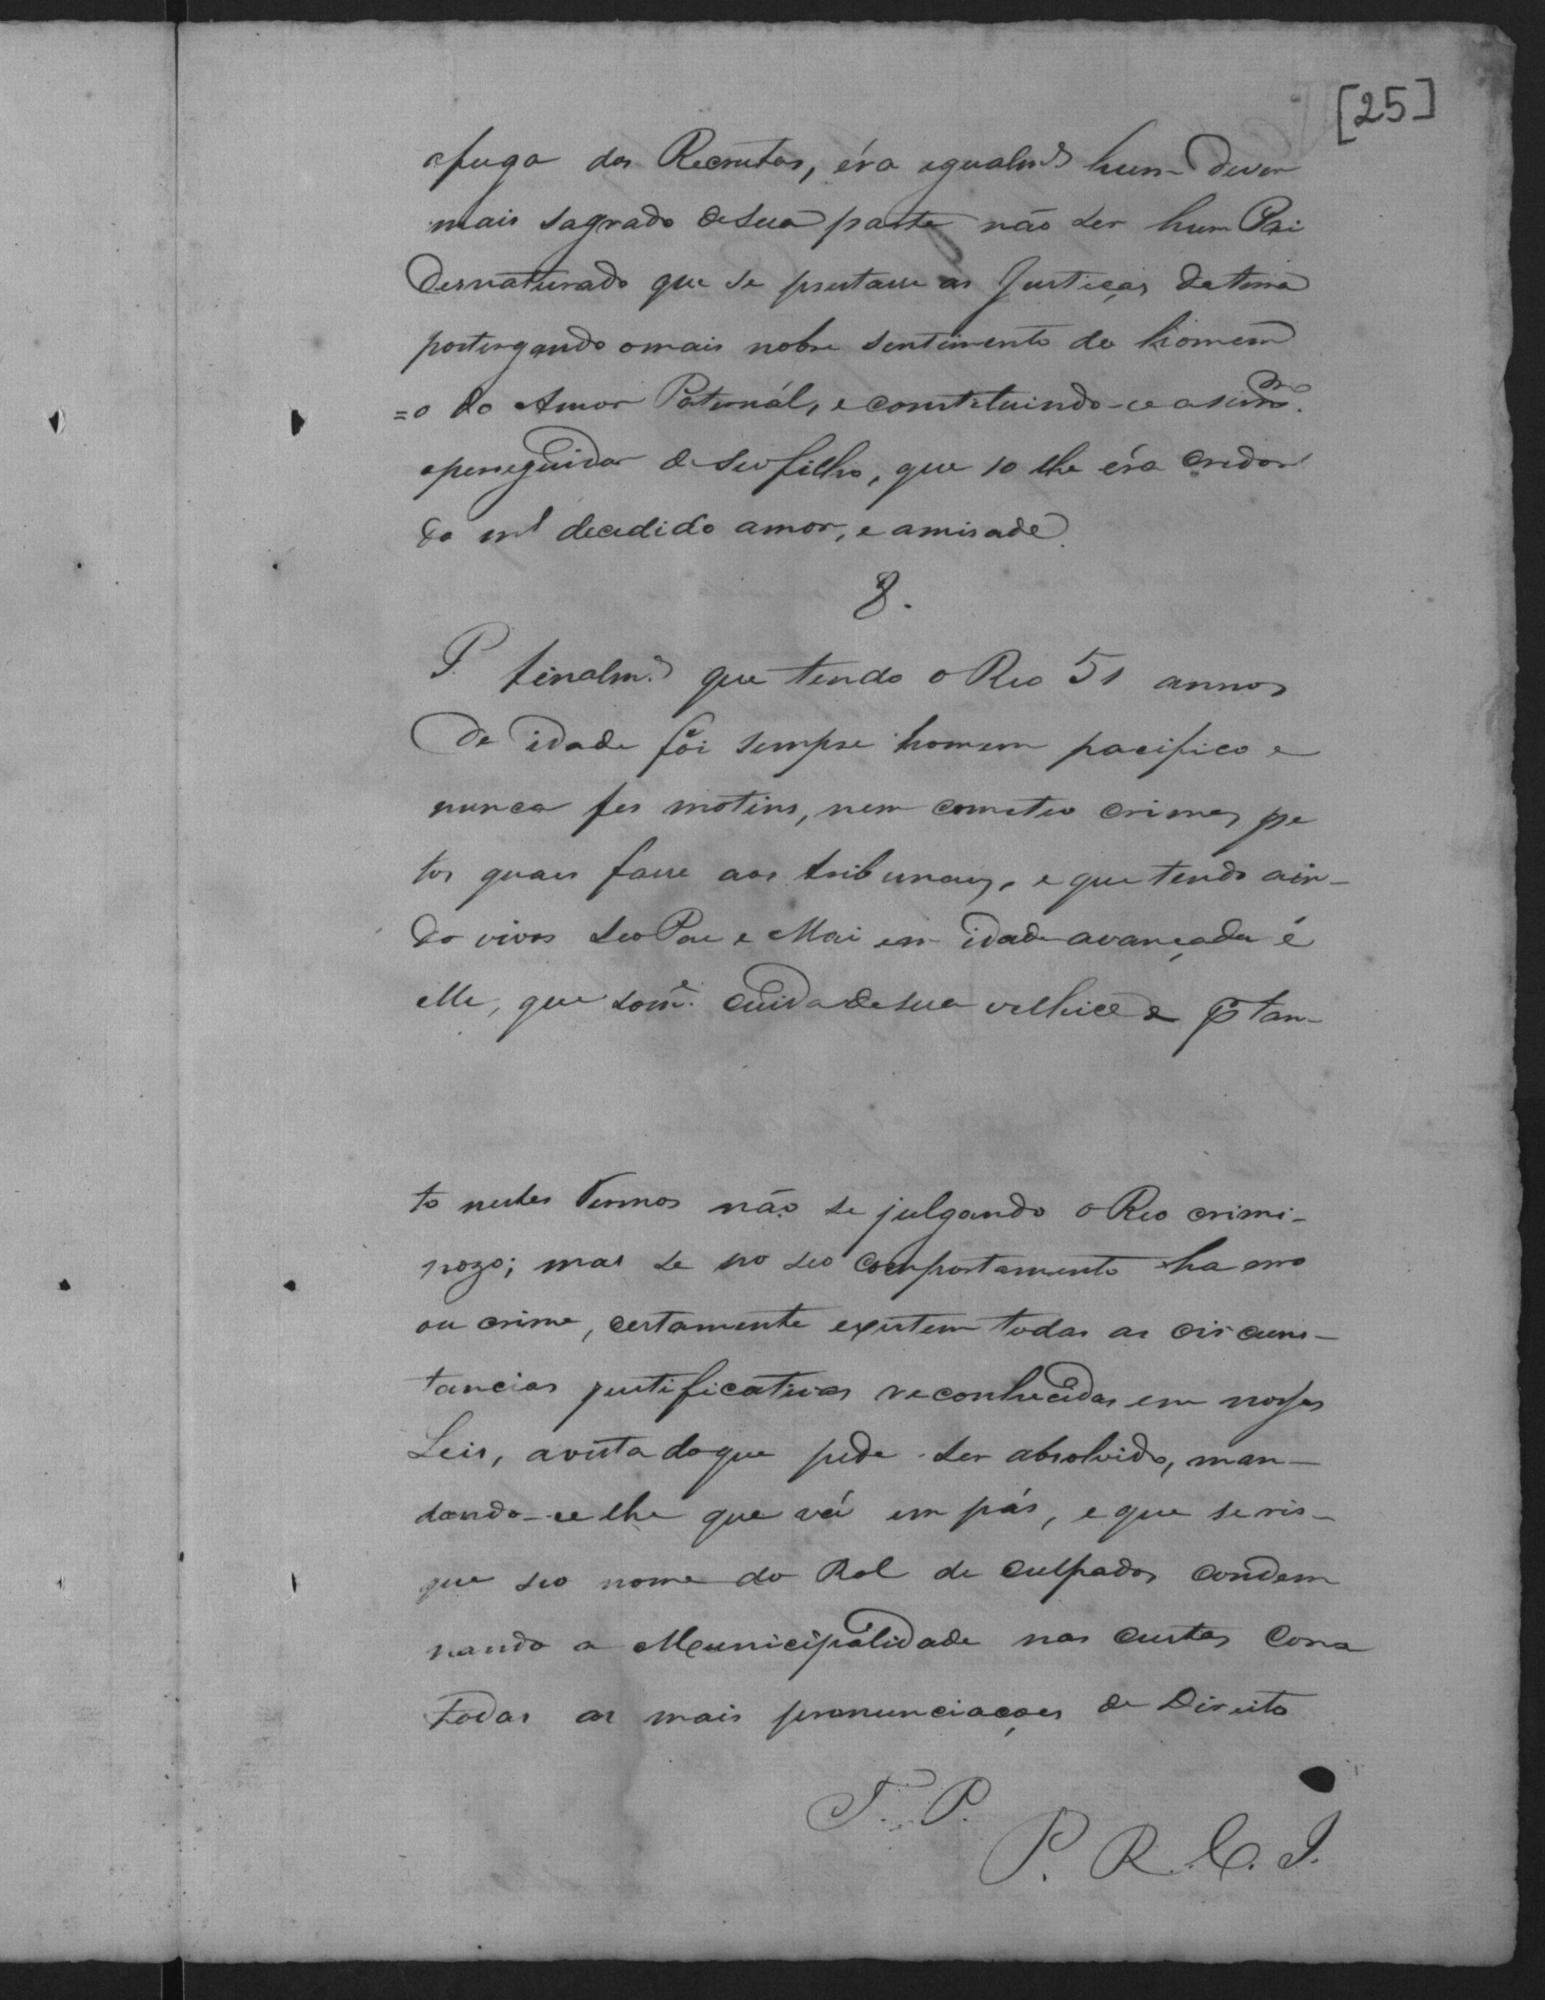 [25]
afuga dos Recrutas, éra egualm.e hum dever
mais sagrado desua parte não ser hum Pai
Desnaturado que se prestasse as Justiças da terra
postergando omais nobre sentimento do homem
=o do Amor Paternál, e constetuindo-ce asim.mo
operseguidor de seofilho, que so lhe éra credor
do m.l decedido amor, e amisade.
8.
P. finalm.e que tendo o Reo 51 annos
de idade fôi sempre homem pacifico e
nunca fes motins, nem cometeo crimes pe
los quaes fosse aos tribunaes, e que tendo ain-
da vivos seo Pae e Mai em idade avançada é
elle, que som.e cuida desua velhice e p.r tan-
to nestes Termos não se julgando o Reo crimi-
nozo; mas se no seo comportamento ha erro
ou crime, certamente existem todas as circuns-
tancias justificativas reconhecidas em nossas
Leis, avista doque pede ser absolvido, man-
dando-ce lhe que vá em pás, e que se ris-
que seo nome do Rol de culpados condem
nando a Municipalidade nas custas Com
todas as mais pronunciações de Direito
F. P.
P. R. C. J.